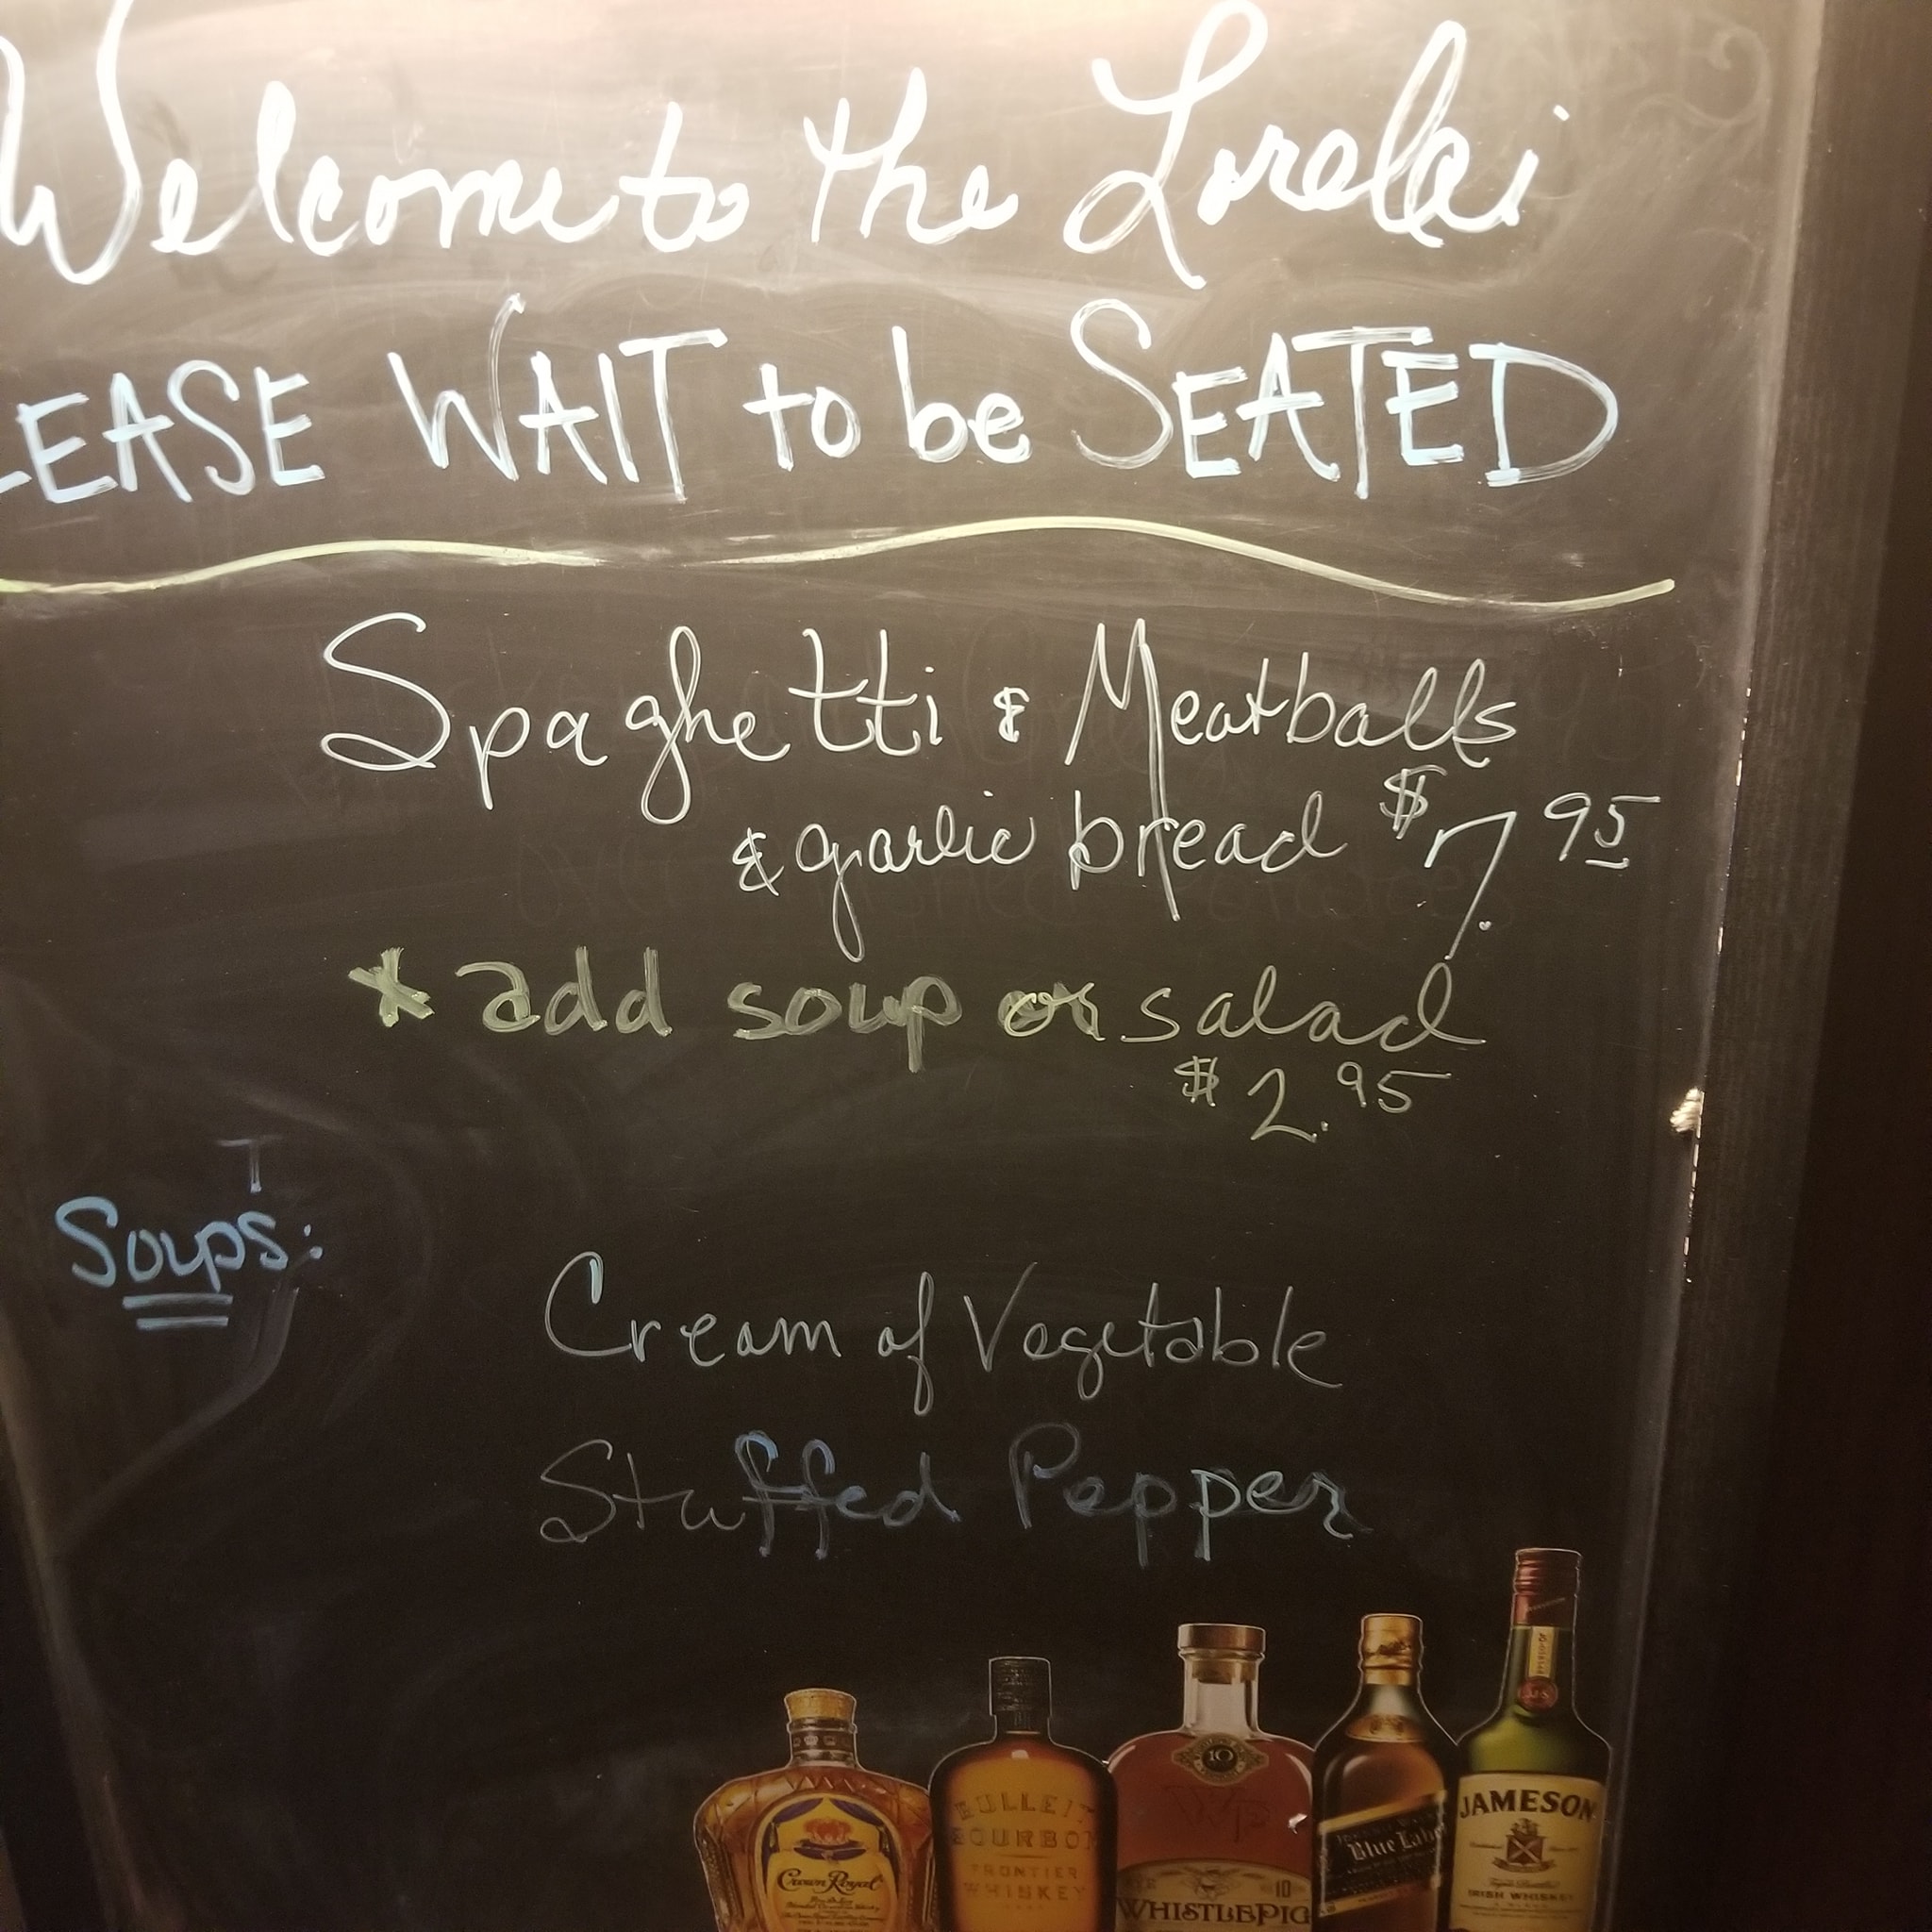 Welcome to the Lorelei
LEASE WAIT to be SEATED
Spaghetti & Meatballs
& garlic bread $7.95
* add soup or salad
$2.95
T
Soups:
Cream of Vegetable
Stuffed Pepper
Crown Royal
BULLEIT
BOURBON
FRONTIER
WHISKEY
10
WP
10
WHISTLEPIG
Blue Label
JAMESON
IRISH WHISKEY